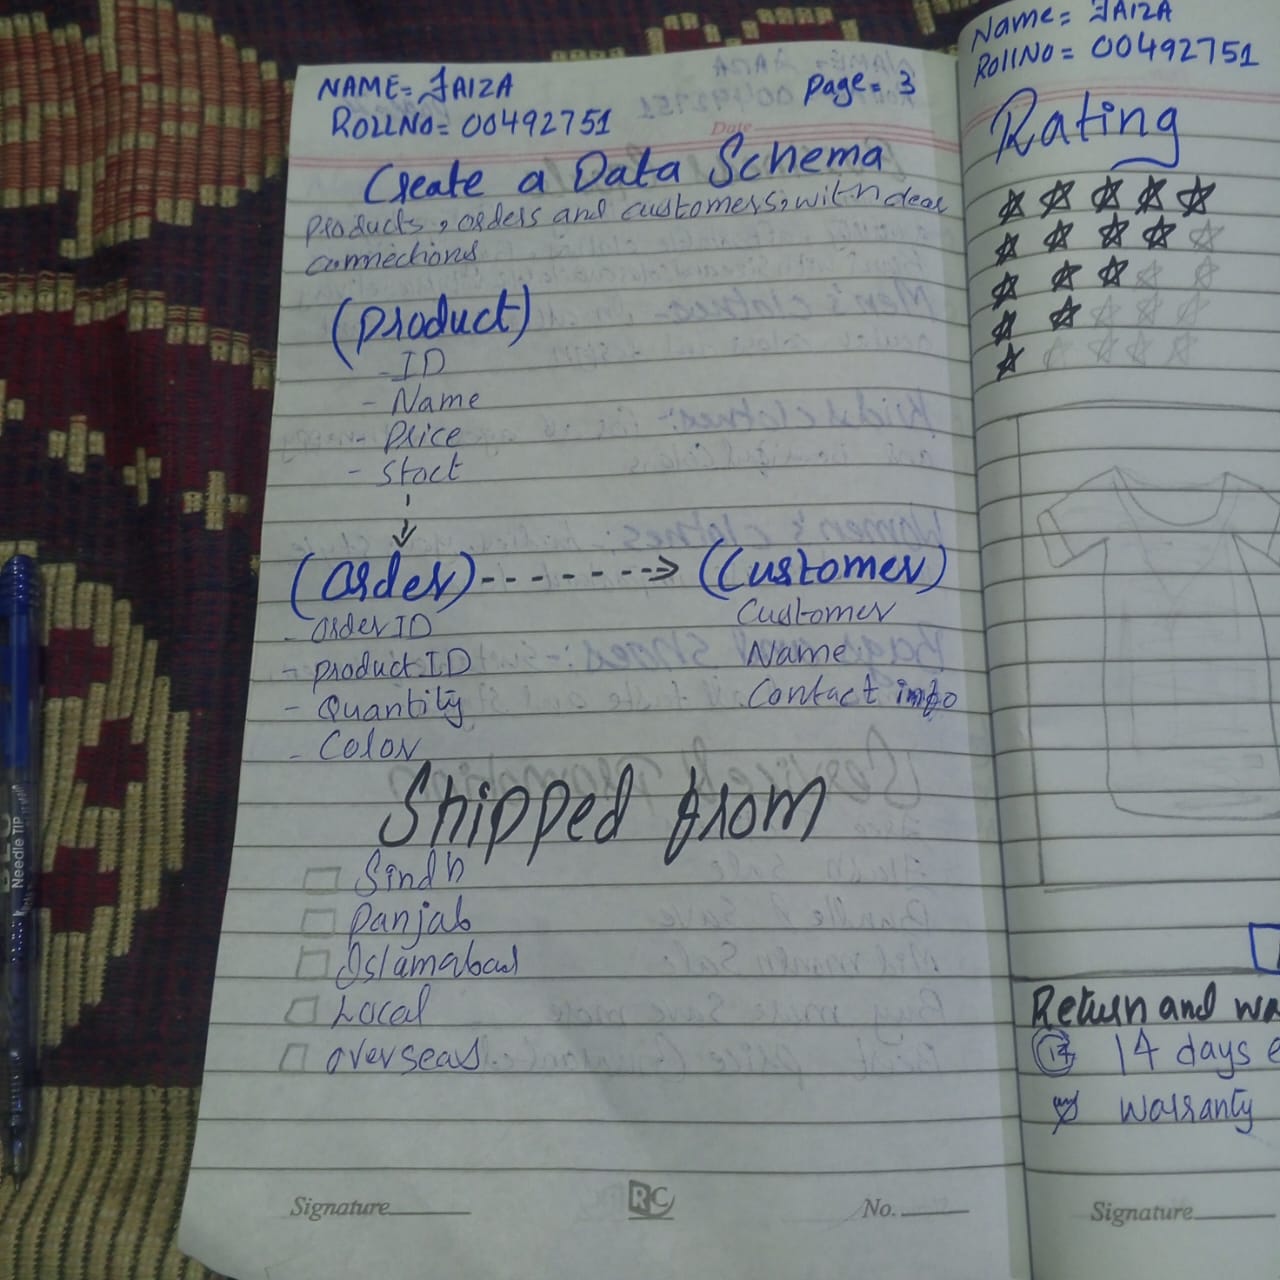 NAME= FAIZA
Page= 3
RollNo= 00492751
Date
Create a Data Schema
Products, orders and customers, with clear
connections
(Product)
- ID
- Name
- Price
- Stock
(Order) -------> (Customer)
- Order ID
- Product ID
- Quantity
- Color
Customer
Name
Contact info
Shipped from
Sindh
Panjab
Islamabad
Local
overseas
Signature
RC
No.
Name= FAIZA
RollNo= 00492751
Rating
Return and wa
14 days e
warranty
Signature
Needle TIP